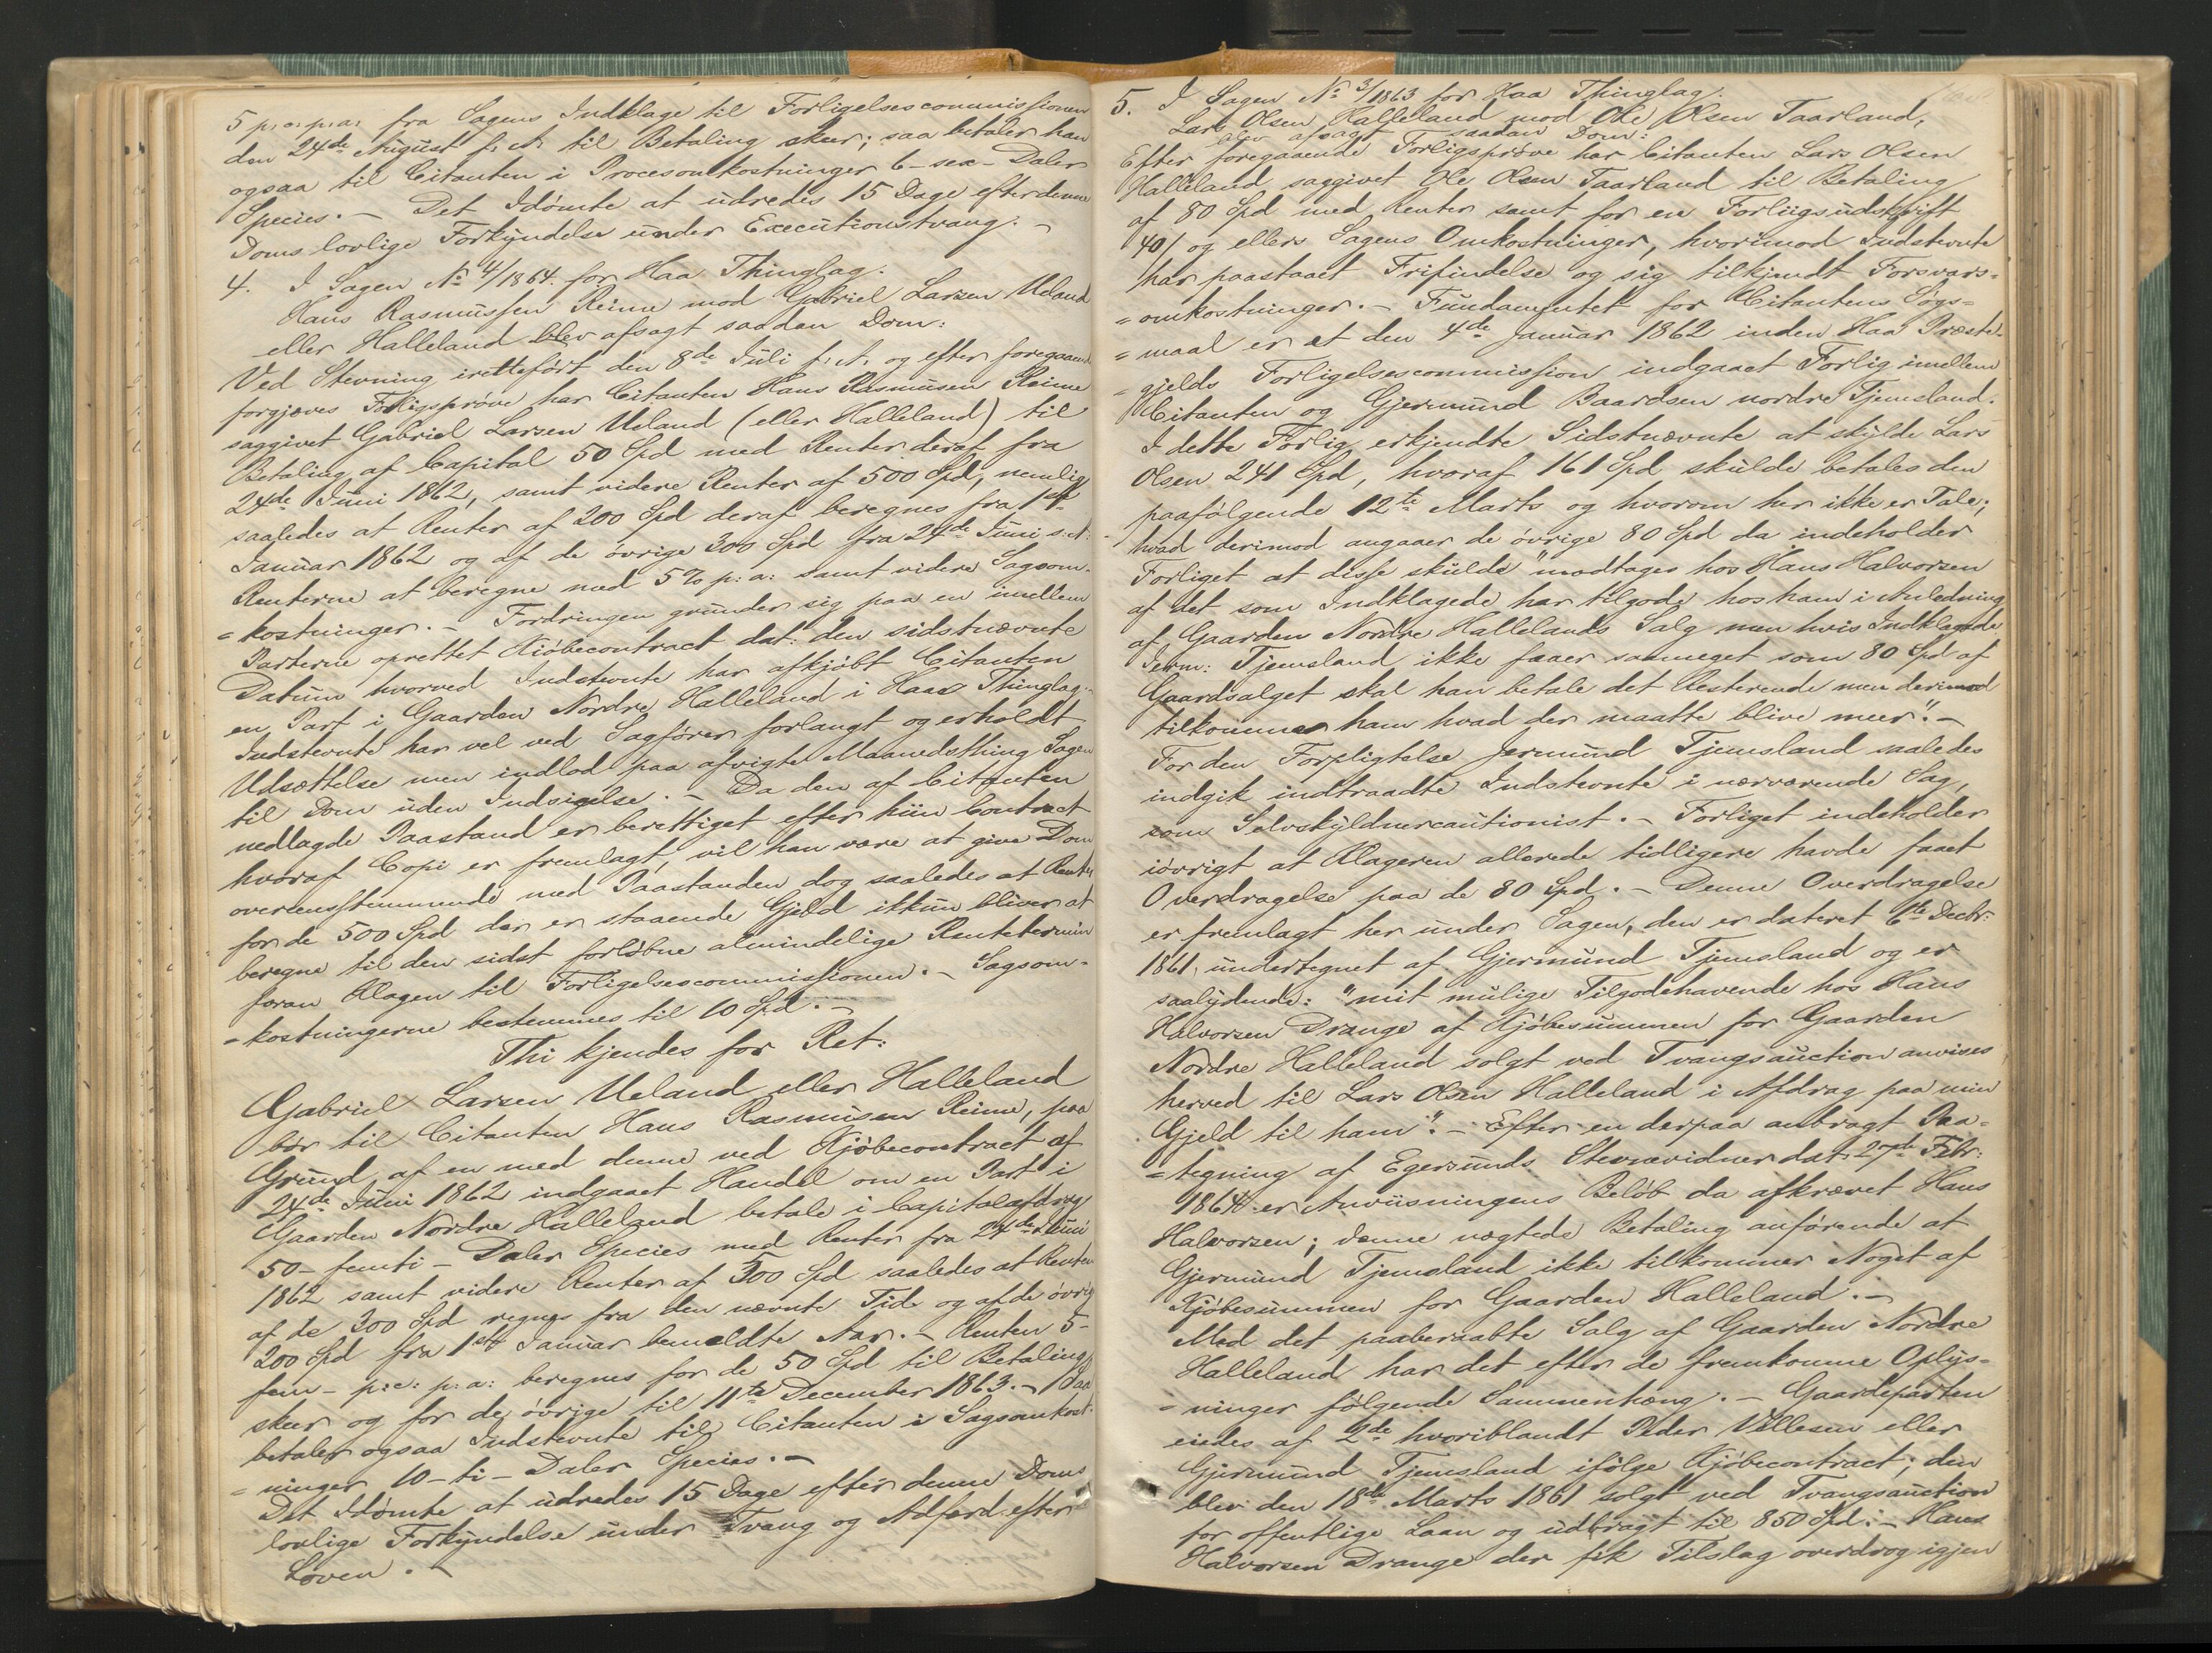 5 p.c. p.a. fra Sagens Indklage til Forligelsescommissionen
den 24de August f: A: til Betaling skeer; saa betaler han
ogsaa til Citanten i Procesomkostninger 6 - sex - Daler
Species. - Det Idømte at udredes 15 Dage efter denne
Doms lovlige Forkyndelse under Executionstvang. -
4. I Sagen No 4/1864. for Haa Thinglag:
Hans Rasmussen Reime mod Gabriel Larsen Ueland
eller Halleland blev afsagt saadan Dom:
Ved Stevning iretteført den 8de Juli f: A: og efter foregaaende
forgjæves Forligsprøve har Citanten Hans Rasmusen Reime
saggivet Gabriel Larsen Ueland (eller Halleland) til
Betaling af Capital 50 Spd med Renter deraf fra
24de Juni 1862, samt videre Renter af 500 Spd, nemlig
saaledes at Renter af 200 Spd deraf beregnes fra 1ste
Januar 1862 og af de øvrige 300 Spd fra 24de Juni s: A:
Renterne at beregne med 5 % p: a: samt videre Sagsom-
=kostninger. - Fordringen grunder sig paa en imellem
Parterne oprettet Kiøbecontract dat: den sidstnævnte
Datum hvorved Indstevnte har afkjøbt Citanten
en Part i Gaarden Nordre Halleland i Haae Thinglag. -
Indstevnte har vel ved Sagfører forlangt og erholdt
Udsættelse men indlod paa afvigte Maanedsthing Sagen
til Dom uden Indsigelse. - Da den af Citanten
nedlagde Paastand er berettiget efter hiin Contract
hvoraf Copi er fremlagt, vil han være at give Dom
overeensstemmende med Paastanden dog saaledes at Renter
for de 500 Spd der er staaende Gjæld ikkun bliver at
beregne til den sidst forløbne almindelige Rentetermin
foran Klagen til Forligelsescommissionen. - Sagsom-
=kostningerne bestemmes til 10 Spd. -
Thi kjendes for Ret:
Gabriel Larsen Ueland eller Halleland
bør til Citanten Hans Rasmusen Reime, paa
Grund af en med denne ved Kjøbecontract af
24de Juni 1862 indgaaet Handel om en Part i
Gaarden Nordre Halleland betale i Capitalafdrag
50 - femti - Daler Species med Renter fra 24de Juni
1862 samt videre Renter af 500 Spd saaledes at Renten
af de 300 Spd regnes fra den nævnte Tid og af de øvrige
200 Spd fra 1ste Januar bemeldte Aar. - Renten 5-
fem - p:c: p:a: beregnes for de 50 Spd til Betaling
skeer og for de øvrige til 11te December 1863. - Saa
betaler ogsaa Indstevnte til Citanten i Sagsomkost-
=ninger 10 - ti - Daler Species. -
Det Idømte at udredes 15 Dage efter denne Doms
lovlige Forkyndelse under Tvang og Adfærd efter
Loven. -
5. I Sagen No 3/1863 for Haa Thinglag:
Lars Olsen Halleland mod Ole Olsen Taarland,
blev afsagt saadan Dom:
Efter foregaaende Forligsprøve har Citanten Lars Olsen
Halleland saggivet Ole Olsen Taarland til Betaling
af 80 Spd med Renter samt for en Forliigsudskrift
40 / og ellers Sagens Omkostninger, hvorimod Indstevnte
har paastaaet Frifindelse og sig tilkjendt Forsvars-
=omkostninger. - Fundamentet for Citantens Søgs-
=maal er at den 4de Januar 1862 inden Haa Præste-
=gjelds Forligelsescommission indgaaet Forlig imellem
Citanten og Gjermund Baardsen nordre Tjemsland.
I dette Forlig erkjendte Sidstnævnte at skylde Lars
Olsen 241 Spd, hvoraf 161 Spd skulde betales den
paafølgende 12te Marts og hvorom her ikke er Tale;
hvad derimod angaaer de øvrige 80 Spd da indeholder
Forliget at disse skulde "modtages hos Hans Halvorsen
af det som Indklagede har tilgode hos ham i Anledning
af Gaarden Nordre Hallelands Salg men hvis Indklagede
Jerm: Tjemsland ikke faaer saameget som 80 Spd af
Gaardsalget skal han betale det Resterende men derimod
tilkommer ham hvad der maatte blive meer". -
For den Forpligtelse Jermund Tjemsland saaledes
indgik indtraadte Indstevnte i nærværende Sag,
som Selvskyldnercautionist. - Forliget indeholder
iøvrigt at Klageren allerede tidligere havde faaet
Overdragelse paa de 80 Spd. - Denne Overdragelse
er fremlagt her under Sagen, den er dateret 6te Decbr:
1861, undertegnet af Gjermund Tjemsland og er
saalydende: "mit mulige Tilgodehavende hos Hans
Halvorsen Drange af Kjøbesummen for Gaarden
Nordre Halleland solgt ved Tvangsauction anvises
herved til Lars Olsen Halleland i Afdrag paa min
Gjeld til ham". - Efter en derpaa anbragt Paa-
=tegning af Egersunds Stevnevidner dat. 27de Febr:
1864 er Anviisningens Beløb da afkrævet Hans
Halvorsen; denne nægtede Betaling anførende at
Gjermund Tjemsland ikke tilkommer Noget af
Kjøbesummen for Gaarden Halleland. -
Med det paaberaabte Salg af Gaarden Nordre
Halleland har det efter de fremkomne Oplys-
=ninger følgende Sammenhæng. - Gaardeparten
eiedes af 2de hvoriblandt Peder Villesen eller
Gjermund Tjemsland ifølge Kjøbecontract; den
blev den 18de Marts 1861 solgt ved Tvangsauction
for offentlige Laan og udbragt til 850 Spd: - Hans
Halvorsen Drange der fik Tilslag overdrog igjen